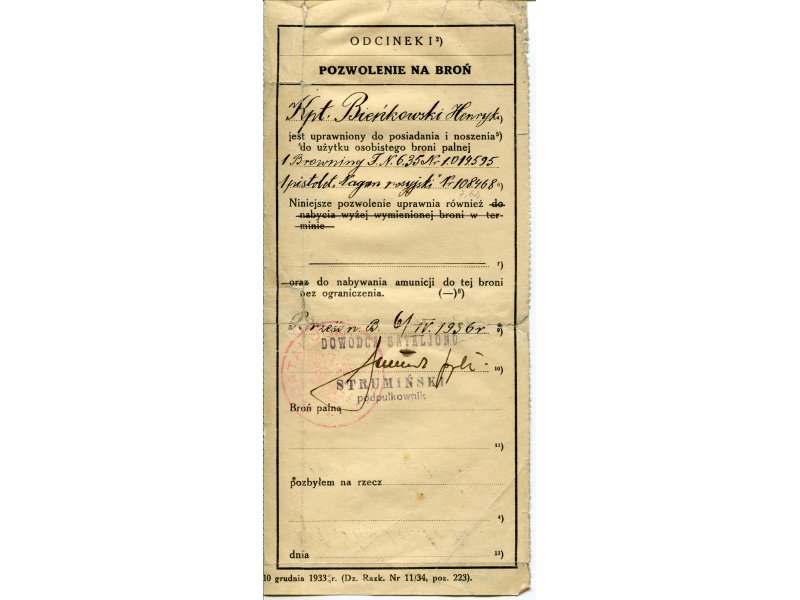 ODCINEK I ²)
POZWOLENIE NA BROŃ
Kpt. Bieńkowski Henryk ⁴)
jest uprawniony do posiadania i noszenia ⁵)
do użytku osobistego broni palnej
1 Browning F.N. 6.35 Nr 1019595
1 pistolet „Nagan rosyjski" Nr 108468 ⁶)
Niniejsze pozwolenie uprawnia również do
nabycia wyżej wymienionej broni w ter-
minie
⁷)
oraz do nabywania amunicji do tej broni
bez ograniczenia. (—) ⁸)
Brześć n. B. 6/IV. 1936 r ⁹)
DOWÓDCA BATALJONU
¹⁰)
STRUMIŃSKI
podpułkownik
Broń palną
¹¹)
pozbyłem na rzecz
⁴)
dnia ¹²)
10 grudnia 1933 r. (Dz. Rozk. Nr 11/34, poz. 223).